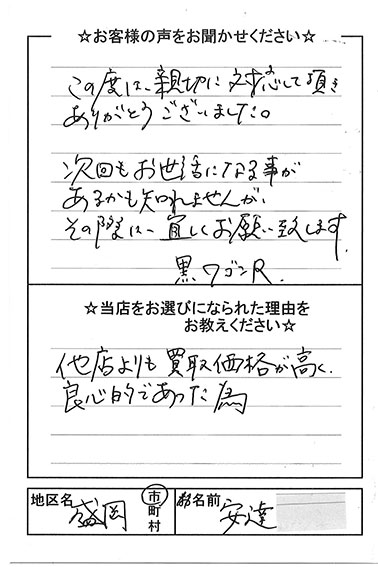 ☆お客様の声をお聞かせください☆
この度は、親切に対応して頂き
ありがとうございました。
次回もお世話になる事が
あるかも知れませんが、
その際は、宜しくお願い致します。
黒ワゴンR.
☆当店をお選びになられた理由を
お教えください☆
他店よりも買取価格が高く、
良心的であった為
地区名 盛岡 市町村 お名前 安達